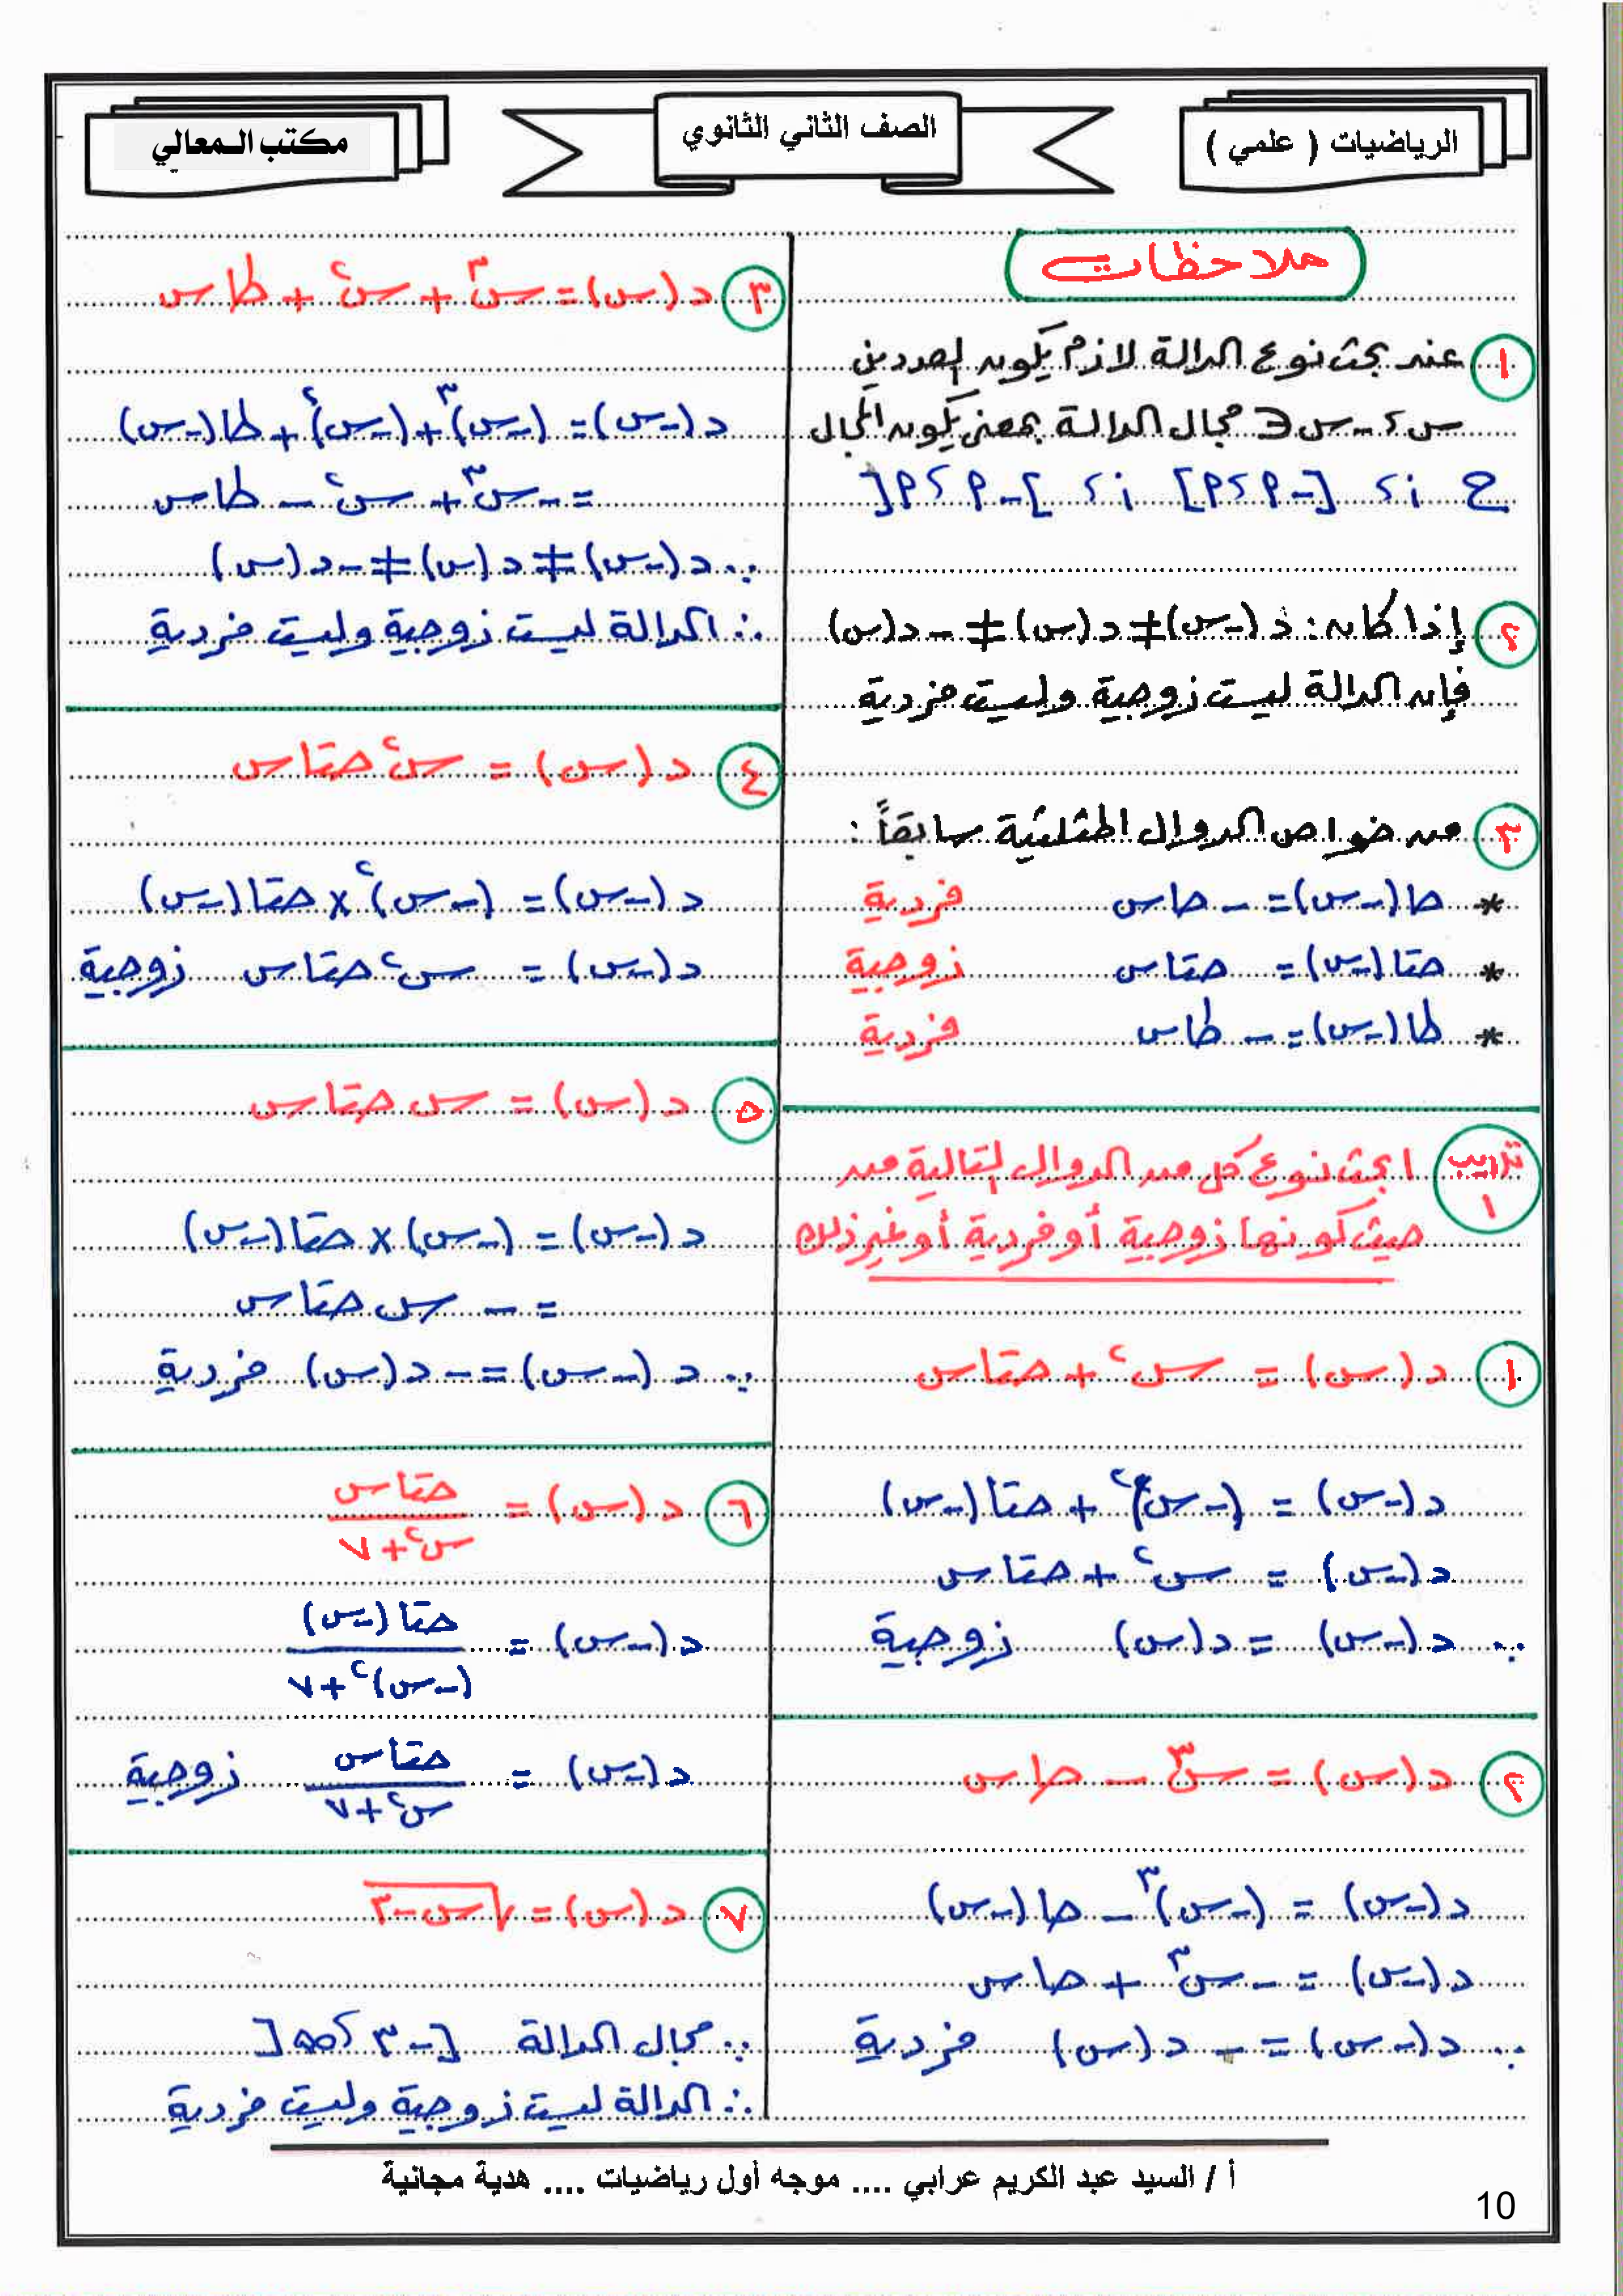 الرياضيات ( علمي )
الصف الثاني الثانوي
مكتب المعالي
ملاحظات
١ عند بحث نوع الدالة لازم يكون العددين
س ، -س ∈ مجال الدالة بمعنى يكون المجال
ح أ، [-٢، ٢] أ، ]-٢، ٢[
٢ إذا كان: د(-س) ≠ د(س) ≠ -د(س)
فإن الدالة ليست زوجية وليست فردية
٣ من خواص الدوال المثلثية سابقاً :
* حا(-س) = - حاس فردية
* حتا(-س) = حتاس زوجية
* طا(-س) = - طاس فردية
تدريب ١ ابحث نوع كل من الدوال التالية من
حيث كونها زوجية أو فردية أو غير ذلك
١ د(س) = س² + حتاس
د(-س) = (-س)² + حتا(-س)
د(-س) = س² + حتاس
∵ د(-س) = د(س) زوجية
٢ د(س) = س³ - حاس
د(-س) = (-س)³ - حا(-س)
د(-س) = -س³ + حاس
∵ د(-س) = - د(س) فردية
٣ د(س) = س³ + س² + طاس
د(-س) = (-س)³ + (-س)² + طا(-س)
= -س³ + س² - طاس
∵ د(-س) ≠ د(س) ≠ -د(س)
∴ الدالة ليست زوجية وليست فردية
٤ د(س) = س² حتاس
د(-س) = (-س)² × حتا(-س)
د(-س) = س² حتاس زوجية
٥ د(س) = س حتاس
د(-س) = (-س) × حتا(-س)
= - س حتاس
∵ د(-س) = -د(س) فردية
٦ د(س) = حتاس / س² + ٧
د(-س) = حتا(-س) / (-س)² + ٧
د(-س) = حتاس / س² + ٧ زوجية
٧ د(س) = √س-٣
∵ مجال الدالة [-٣، ∞[
∴ الدالة ليست زوجية وليست فردية
أ / السيد عبد الكريم عرابي .... موجه أول رياضيات .... هدية مجانية
10